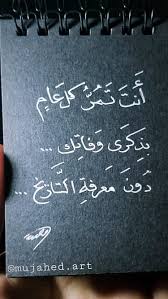 أَنتَ تَمُرُّ كل عَامٍ
بِذكرَى وَفاتِك ...
دُونَ مَعرفةِ التَّاريخ ...
@mujahed.art